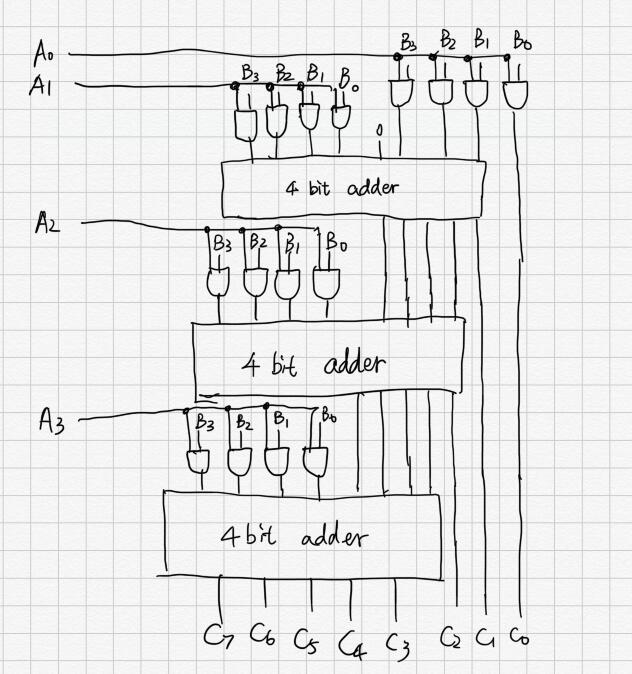 A0 B3 B2 B1 B0
A1 B3 B2 B1 B0
0
4 bit adder
A2
B3 B2 B1 B0
4 bit adder
A3 B3 B2 B1 B0
4 bit adder
C7 C6 C5 C4 C3 C2 C1 C0